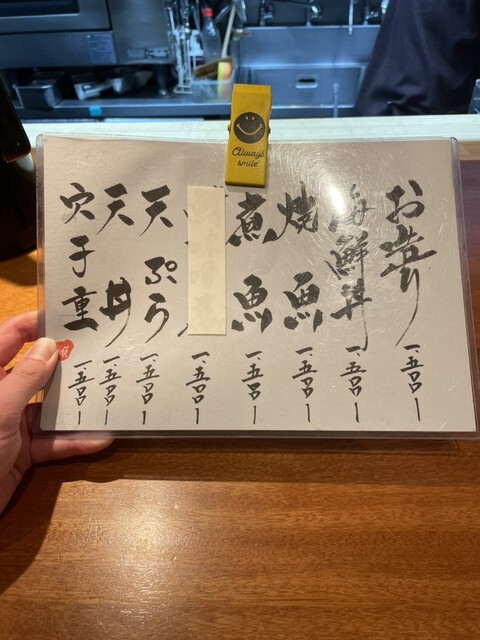 Always
smile
お造り 一、五〇〇ー
海鮮丼 一、五〇〇ー
焼魚 一、五〇〇ー
煮魚 一、五〇〇ー
一、五〇〇ー
天ぷら 一、五〇〇ー
天丼 一、五〇〇ー
穴子重 一、五〇〇ー